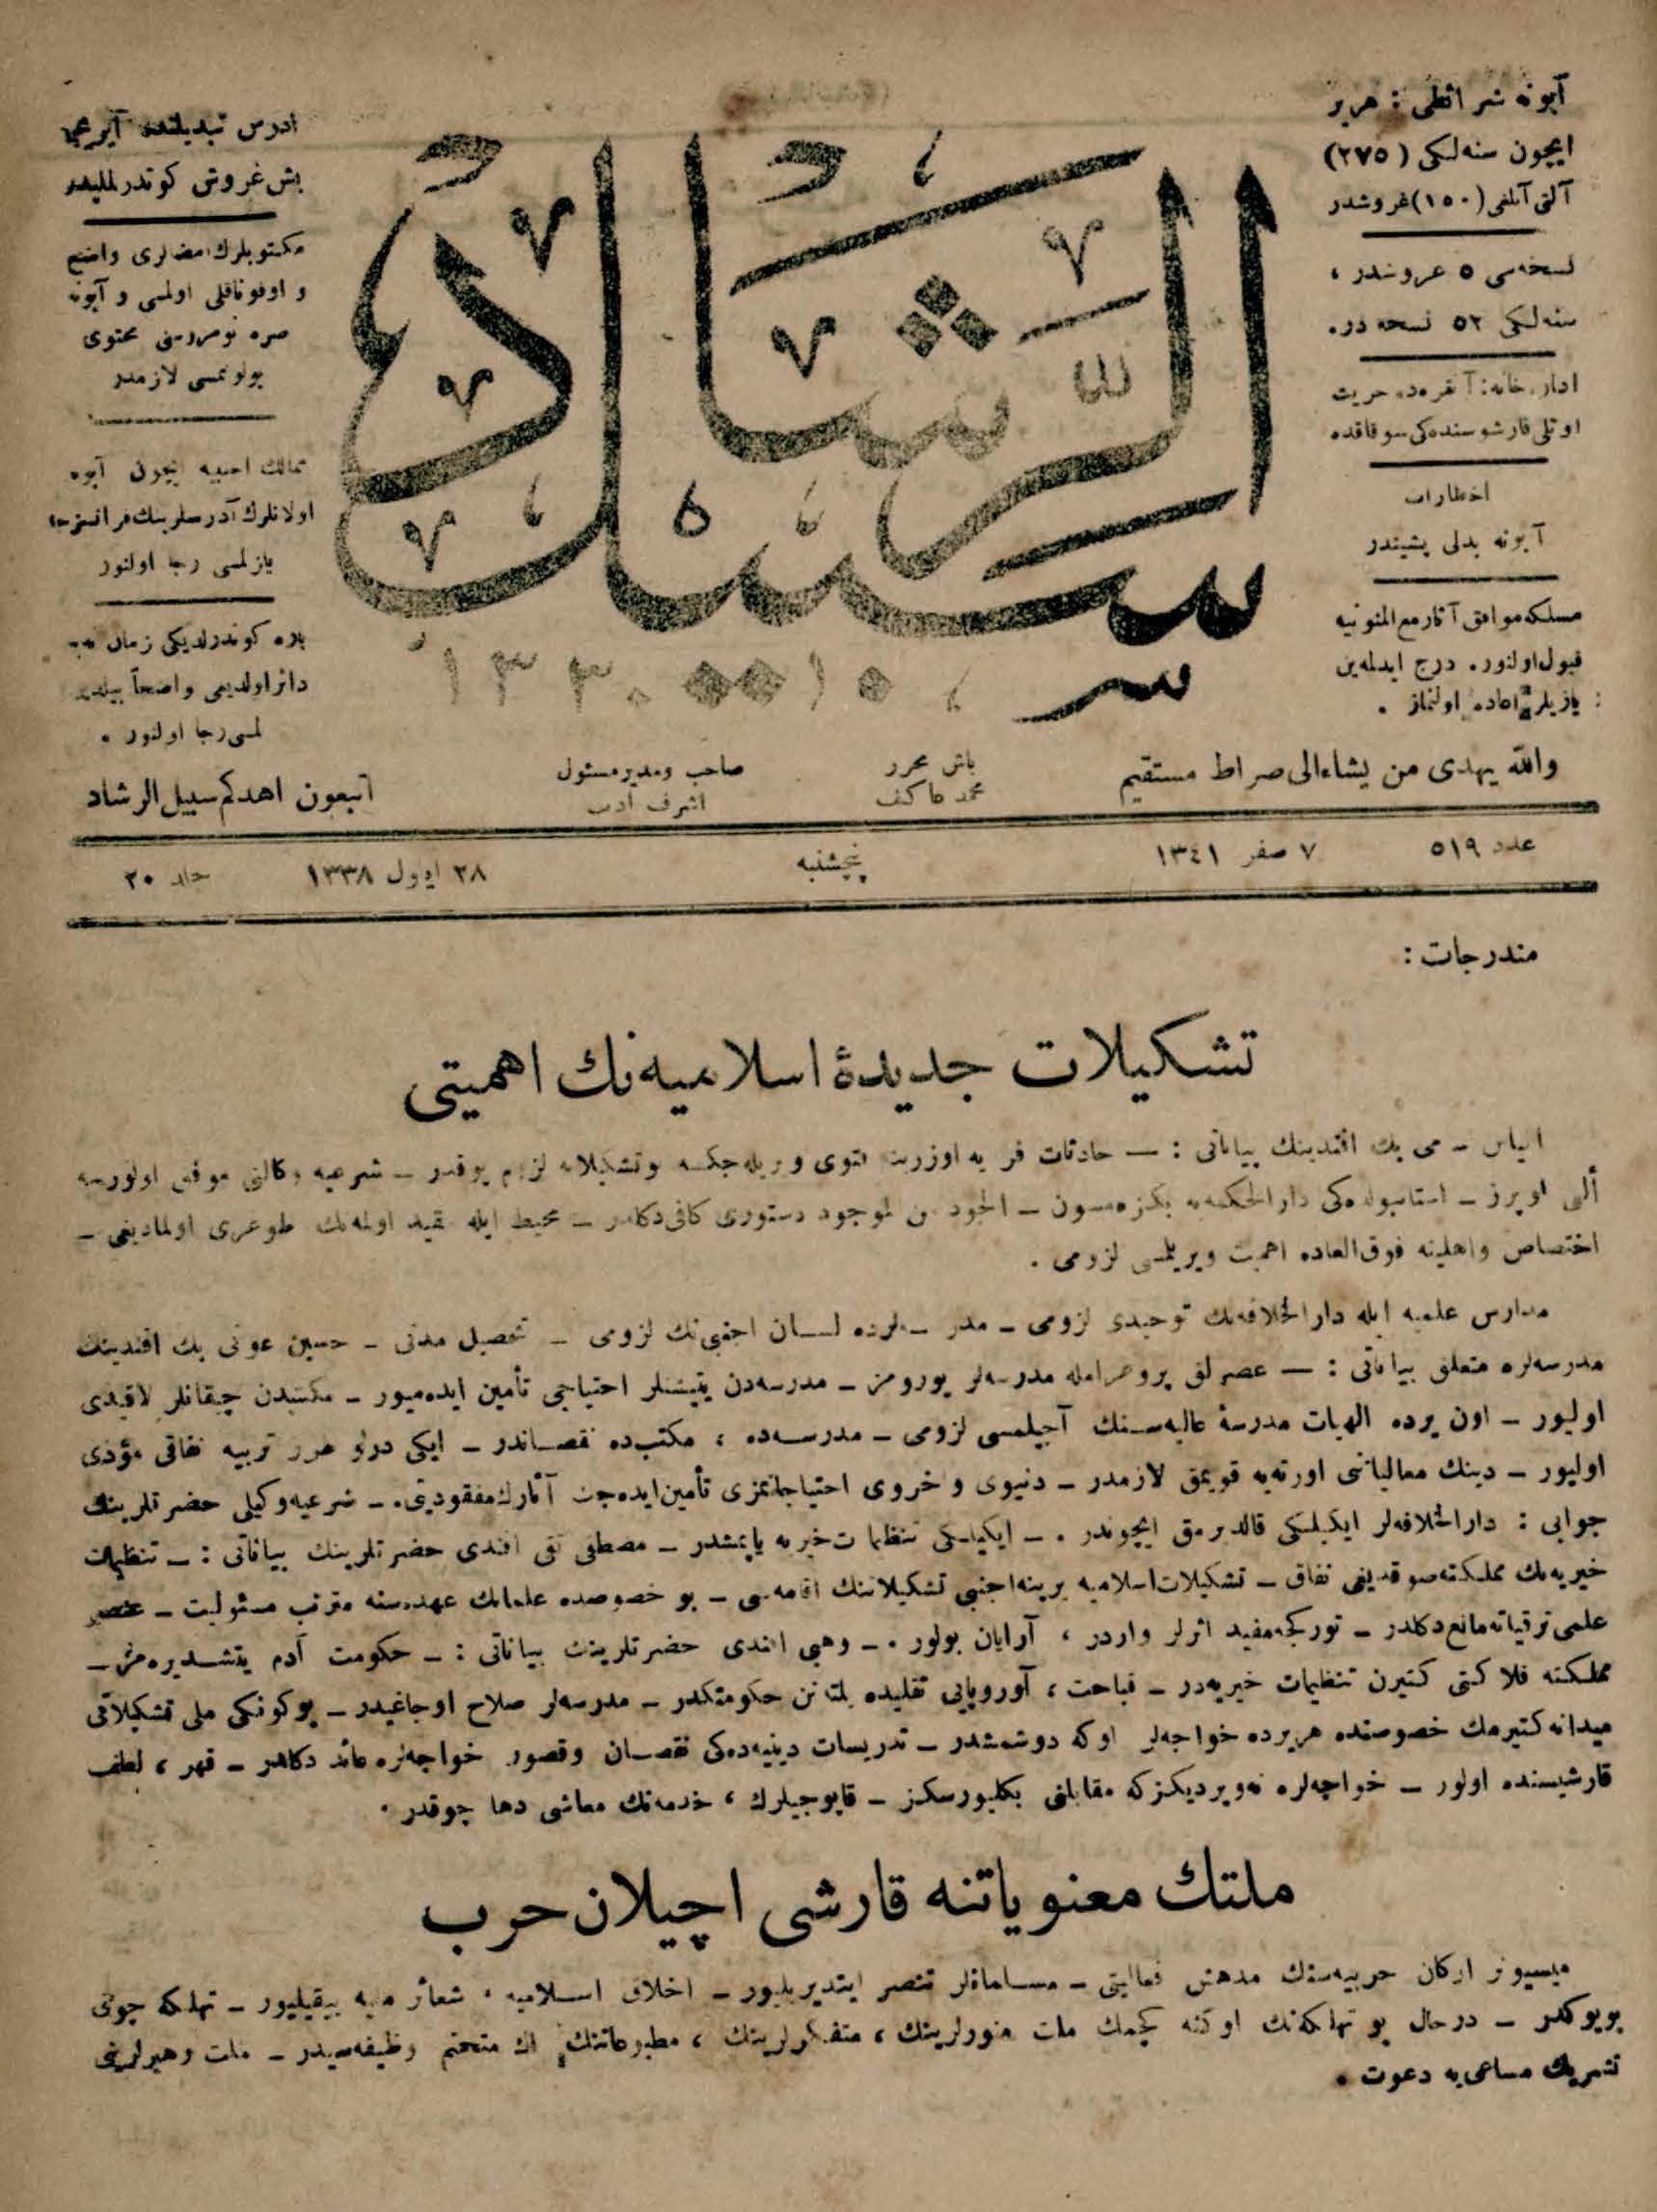 آبونه شرائطی : هر یر
ایچون سنه‌لکی (۲۷۵)
آلتی آیلغی (۱۵۰) غروشدر
نسخه‌سی ۵ غروشدر ،
سنه‌لکی ۵۲ نسخه در.
اداره خانه : آنقره‌ده حریت
اوتلی قارشوسنده‌کی سوقاقده
اخطارات
آبونه بدلی پشیندر
مسلکه موافق آثار مع المنونیه
قبول اولنور. درج ایدلمه‌ین
یازیلر اعاده اولنماز .
سبیل الرشاد
سر ۱۳۳۰
ادرس تبدیلنده آیریجه
بش غروش کوندرلملیدر
مکتوبلرك امضالری واضح
و اوقوناقلی اولمسی و آبونه
صره نومروسنی محتوی
بولونمسی لازمدر
ممالك اجنبیه ایچون آبونه
اولانلرك آدرسلرینك فرانسزجه
یازلمسی رجا اولنور
پاره کوندرلدیکی زمان نه‌یه
دائر اولدیغی واضحاً بیلدیر
لمسی رجا اولنور .
والله یهدی من یشاء الی صراط مستقیم
باش محرر
محمد عاکف
صاحب ومدیر مسئول
اشرف ادیب
اتبعون اهدکم سبیل الرشاد
عدد ۵۱۹
۷ صفر ۱۳٤۱
پنجشنبه
۲۸ ایلول ۱۳۳۸
جلد ۲۰
مندرجات :
تشکیلات جدیدۀ اسلامیه‌نك اهمیتی
بك افندینك بیاناتی : — حادثات فر یه اوزرینه فتوی ویریله‌جکسه بو تشکیلاته لزوم یوقدر – شرعیه وکالتی موفق اولورسه
ألنی اوپرز – استانبولده‌کی دار الحکمه‌یه بکزه‌مسون – الجود من الموجود دستوری کافی دکلدر – محیط ایله مقید اولمه‌نك طوغری اولمادیغی –
اختصاص واهلیته فوق العاده اهمیت ویریلمسی لزومی .
مدارس علمیه ایله دار الخلافه‌نك توحیدی لزومی – مدرسه‌لرده لسان اجنبی‌نك لزومی – تحصیل مدتی – حسین عونی بك افندینك
مدرسه‌لره متعلق بیاناتی : — عصرلق پروغرامله مدرسه‌لر یورومز – مدرسه‌دن یتیشنلر احتیاجی تأمین ایده‌میور – مکتبدن چیقانلر لاقیدی
اولیور – اون یرده الهیات مدرسۀ عالیه‌سنك آچیلمسی لزومی – مدرسه‌ده ، مکتب‌ده نقصاندر – ایکی درلو طرز تربیه نفاقی مؤدی
اولیور – دینك معالیاتنی اورته‌یه قویمق لازمدر – دنیوی و خروی احتیاجاتمزی تأمین ایده‌جك آثارك مفقودیتی. – شرعیه وکیلی حضرتلرینك
جوابی : دار الخلافه‌لر ایکیلیکی قالدیرمق ایچوندر . – ایکیلیکی تنظیمات خیریه یاپمشدر – مصطفی تقی افندی حضرتلرینك بیاناتی : – تنظیمات
خیریه‌نك مملکته صوقدیغی نفاق – تشکیلات اسلامیه یرینه اجنبی تشکیلاتنك اقامه‌سی – بو خصوصده علمانك عهده‌سنه مترتب مسئولیت – عنصر
علمی ترقیاته مانع دکلدر – تورکجه مفید اثرلر واردر ، آرایان بولور . – وهبی افندی حضرتلرینك بیاناتی : – حکومت آدم یتشدیره‌مز –
مملکته فلاکتی کتیرن تنظیمات خیریه‌در – قباحت ، آوروپایی تقلیده یلته‌نن حکومتکدر – مدرسه‌لر صلاح اوجاغیدر – بو کونکی ملی تشکیلاتی
میدانه کتیرمك خصوصنده هر یرده خواجه‌لر اوکه دوشمشدر – تدریسات دینیه‌ده‌کی نقصان وقصور خواجه‌لره عائد دکلدر – قهر ، لطف
قارشیسنده اولور – خواجه‌لره نه‌ویردیکز که مقابلنی بکلیورسکز – قاپوجیلرك ، خدمه‌نك معاشی دها چوقدر .
ملتك معنویاتنه قارشی اچیلان حرب
میسیونر ارکان حربیه‌سنك مدهش فعالیتی – مسلمانلر تنصر ایتدیریلیور – اخلاق اسلامیه ، شعائر ملیه ییقیلیور – تهلکه چوق
بویوکدر – درحال بو تهلکه‌نك اوکنه کچمك ملت منورلرینك ، متفکرلرینك ، مطبوعاتنك اك متحتم وظیفه‌سیدر – ملت رهبرلرینی
تشریك مساعی‌یه دعوت .